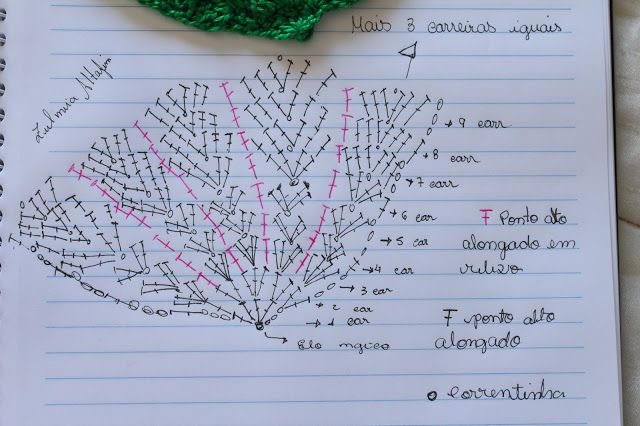 Mais 3 carreiras iguais
Zulmira Mafra
→ 9 carr
→ 8 carr
→ 7 carr
→ 6 car
→ 5 car
→ 4 car
→ 3 car
→ 2 car
→ 1 car
Elo mgico
Ŧ Ponto alto
alongado em
relevo
Ŧ ponto alto
alongado
o correntinha